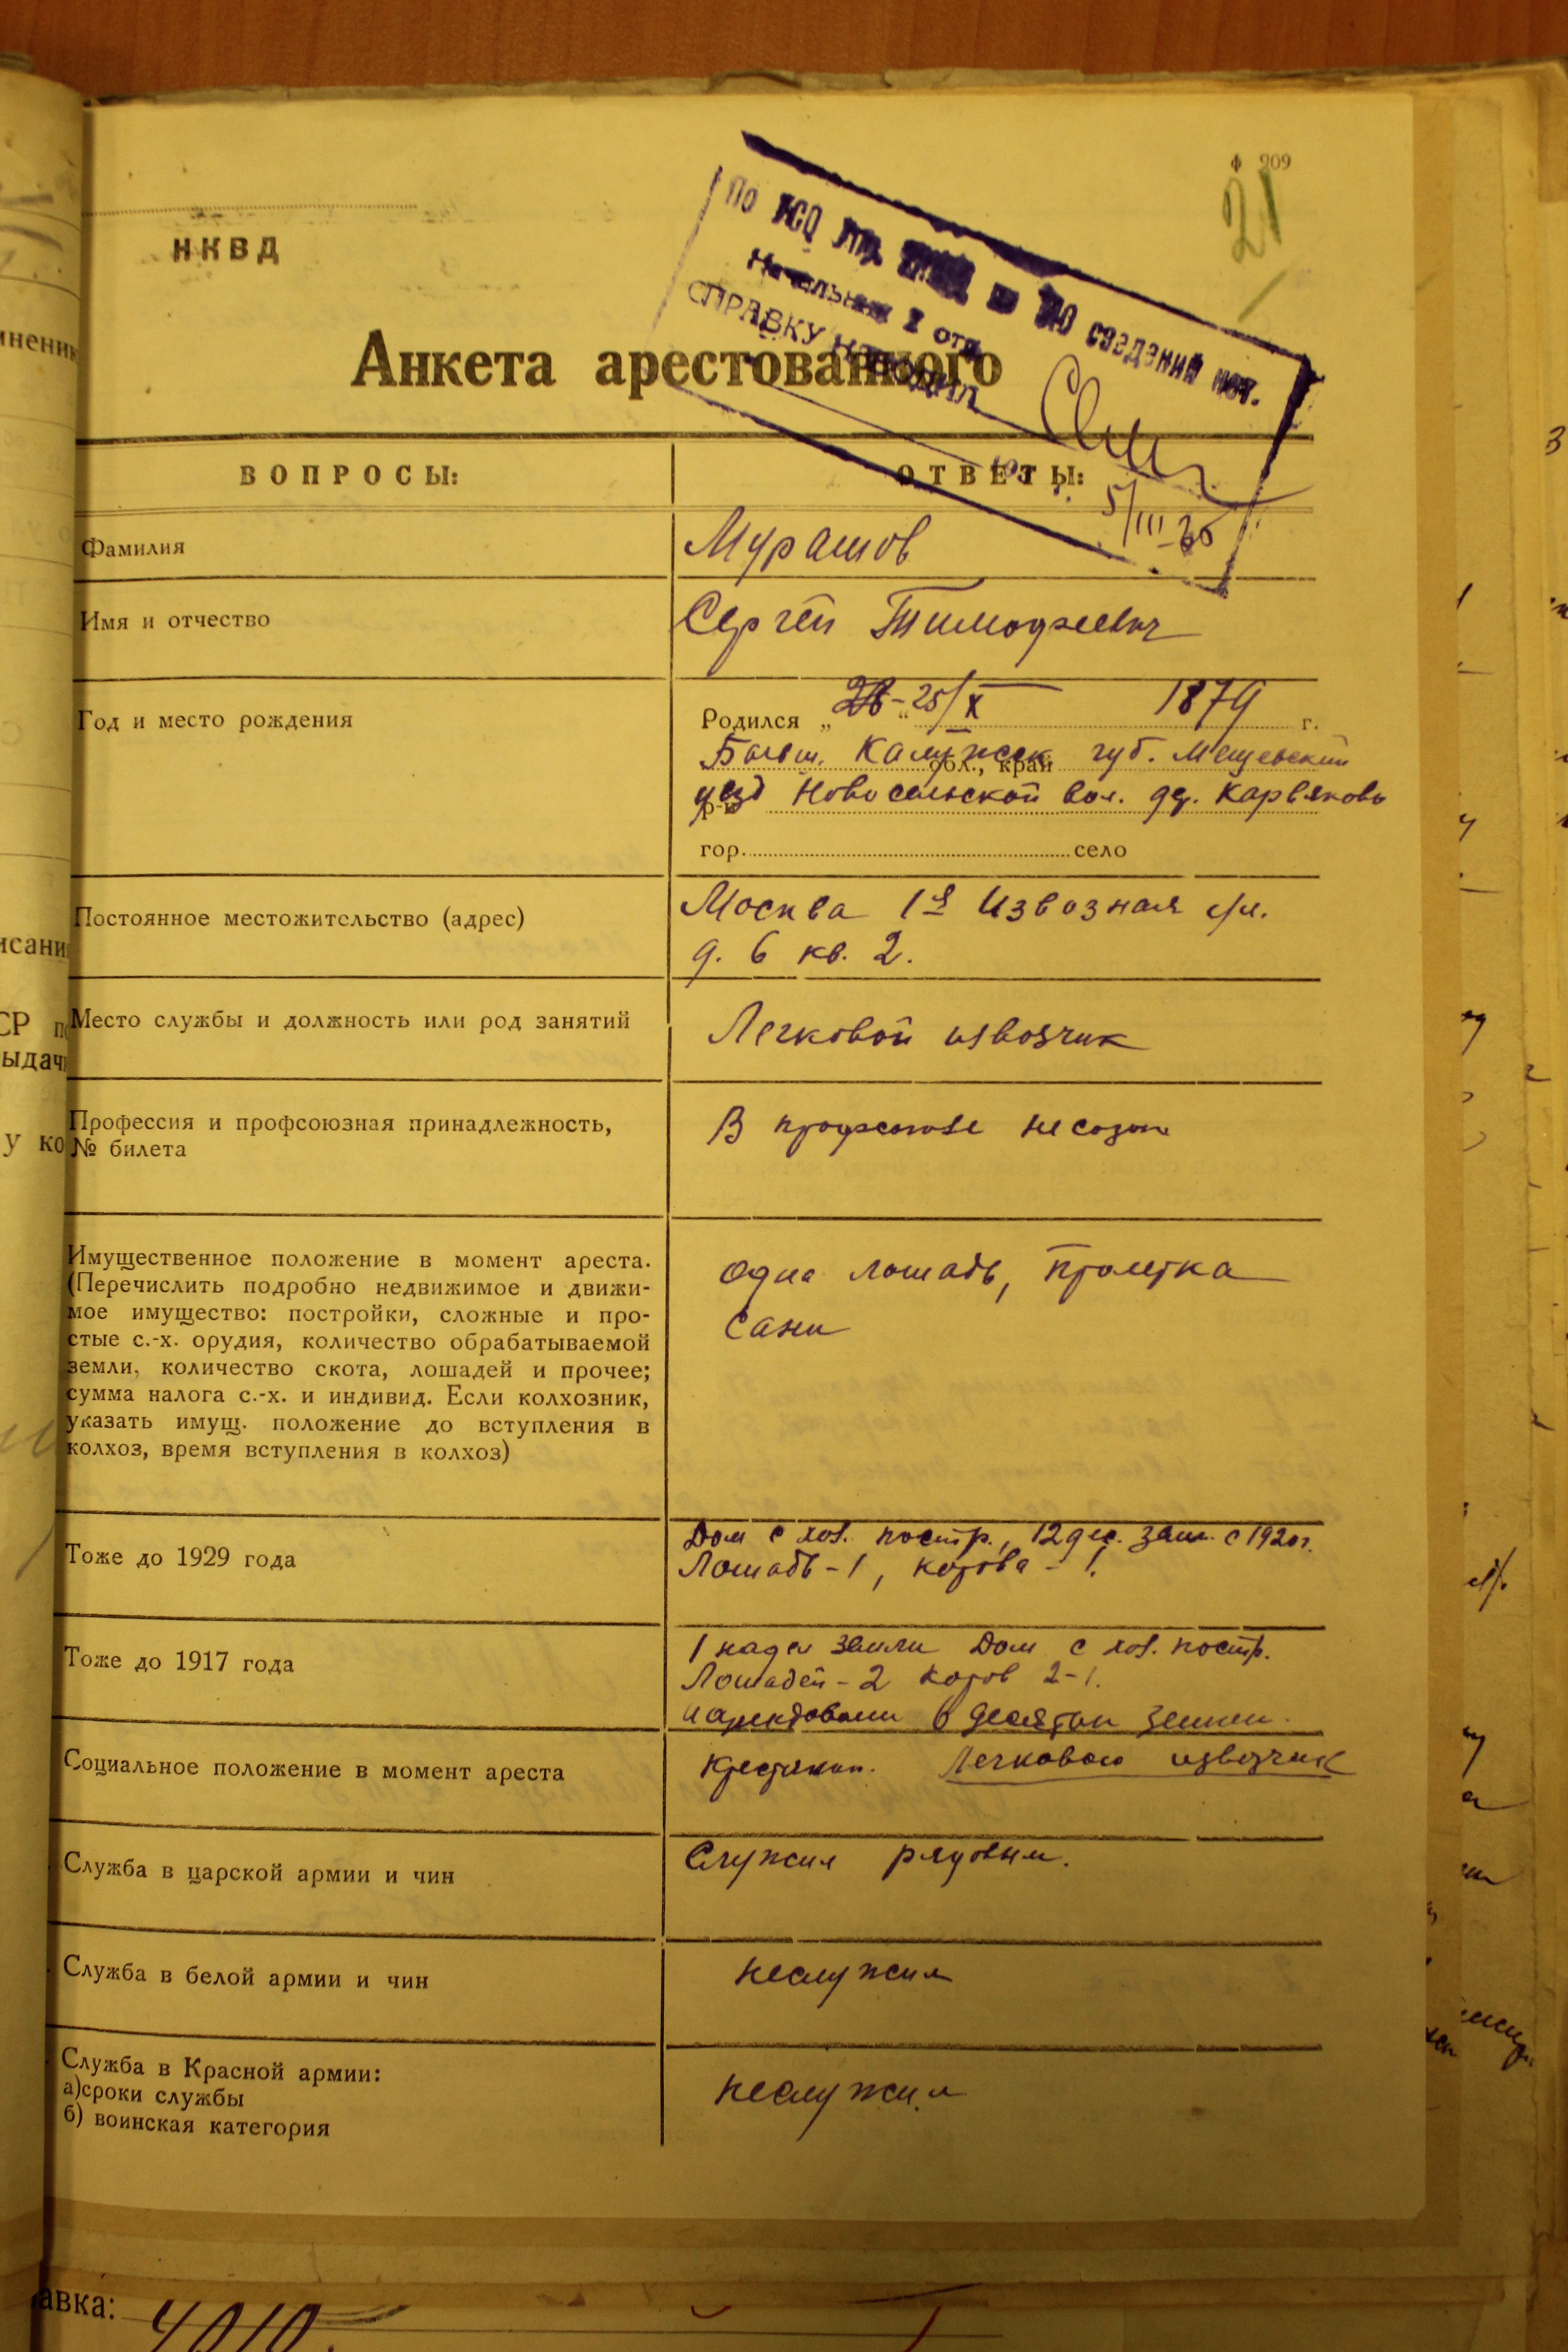 Ф 209
21
НКВД
По УСО сведений нет.
Начальник I отд.
СПРАВКУ НАВОДИЛ
5/III-35
Анкета арестованного
ВОПРОСЫ:
ОТВЕТЫ:
Фамилия
Мурашов
Имя и отчество
Сергей Тимофеевич
Год и место рождения
Родился „ 25/X 1879 г.
Бывш. Калужск губ. Мещевский
обл., край
уезд Новосельской вол. дер.
р-н
гор. село
Постоянное местожительство (адрес)
Москва 1я Извозная ул.
д. 6 кв. 2.
Место службы и должность или род занятий
Легковой извозчик
Профессия и профсоюзная принадлежность,
№ билета
В профсоюзе не состою
Имущественное положение в момент ареста.
(Перечислить подробно недвижимое и движи-
мое имущество: постройки, сложные и про-
стые с.-х. орудия, количество обрабатываемой
земли, количество скота, лошадей и прочее;
сумма налога с.-х. и индивид. Если колхозник,
указать имущ. положение до вступления в
колхоз, время вступления в колхоз)
одна лошадь, пролетка
сани
Тоже до 1929 года
Дом с хоз. постр., 12 дес. земл. с 1920 г.
Лошадь - 1, корова - 1.
Тоже до 1917 года
1 надел земли Дом с хоз. постр.
Лошадей - 2 коров 2-1.
и арендовали 6 десятин земли.
Социальное положение в момент ареста
Крестьянин. Легковой извозчик
Служба в царской армии и чин
Служил рядовым.
Служба в белой армии и чин
неслужил
Служба в Красной армии:
а)сроки службы
б) воинская категория
неслужил
авка: